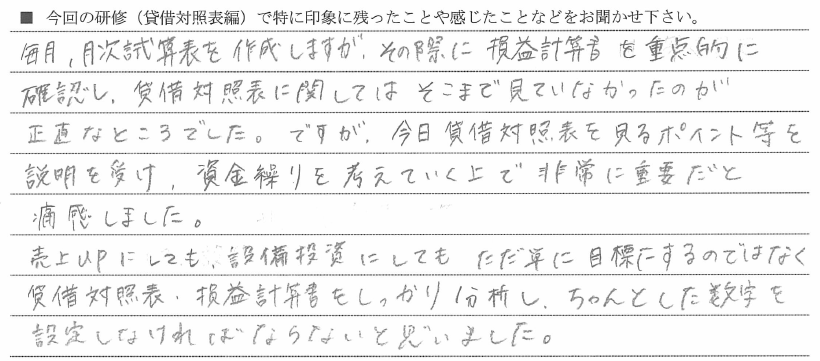 ■ 今回の研修（貸借対照表編）で特に印象に残ったことや感じたことなどをお聞かせ下さい。
毎月、月次試算表を作成しますが、その際に損益計算書を重点的に
確認し、貸借対照表に関してはそこまで見ていなかったのが
正直なところでした。ですが、今日貸借対照表を見るポイント等を
説明を受け、資金繰りを考えていく上で非常に重要だと
痛感しました。
売上UPにしても、設備投資にしてもただ単に目標にするのではなく
貸借対照表・損益計算書をしっかり分析し、ちゃんとした数字を
設定しなければならないと思いました。